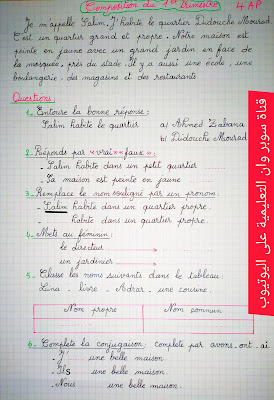 Composition du 1er trimestre 4 AP
Je m'appelle Salim, J'habite le quartier Didouche Mourad.
C'est un quartier grand et propre. Notre maison est
peinte en jaune avec un grand jardin en face de
la mosquée, près du stade. Il y a aussi une école, une
boulangerie, des magasins et des restaurants.
Questions:
1. Entoure la bonne réponse:
Salim habite le quartier a) Ahmed Zabana
b) Didouche Mourad
2. Réponds par «vrai» «faux»:
- Salim habite dans un petit quartier
- Sa maison est peinte en jaune
3. Remplace le nom souligné par un pronom:
- Salim habite dans un quartier propre.
- habite dans un quartier propre.
4. Mets au féminin:
le directeur →
un jardinier →
5. Classe les noms suivants dans le tableau:
Lina - livre - Adrar - une cousine.
Nom propre Nom commun
6. Complète la conjugaison: complète par avons - ont - ai
- J' une belle maison.
- Ils une belle maison.
- Nous une belle maison.
قناة سوبر وان التعليمية على اليوتيوب